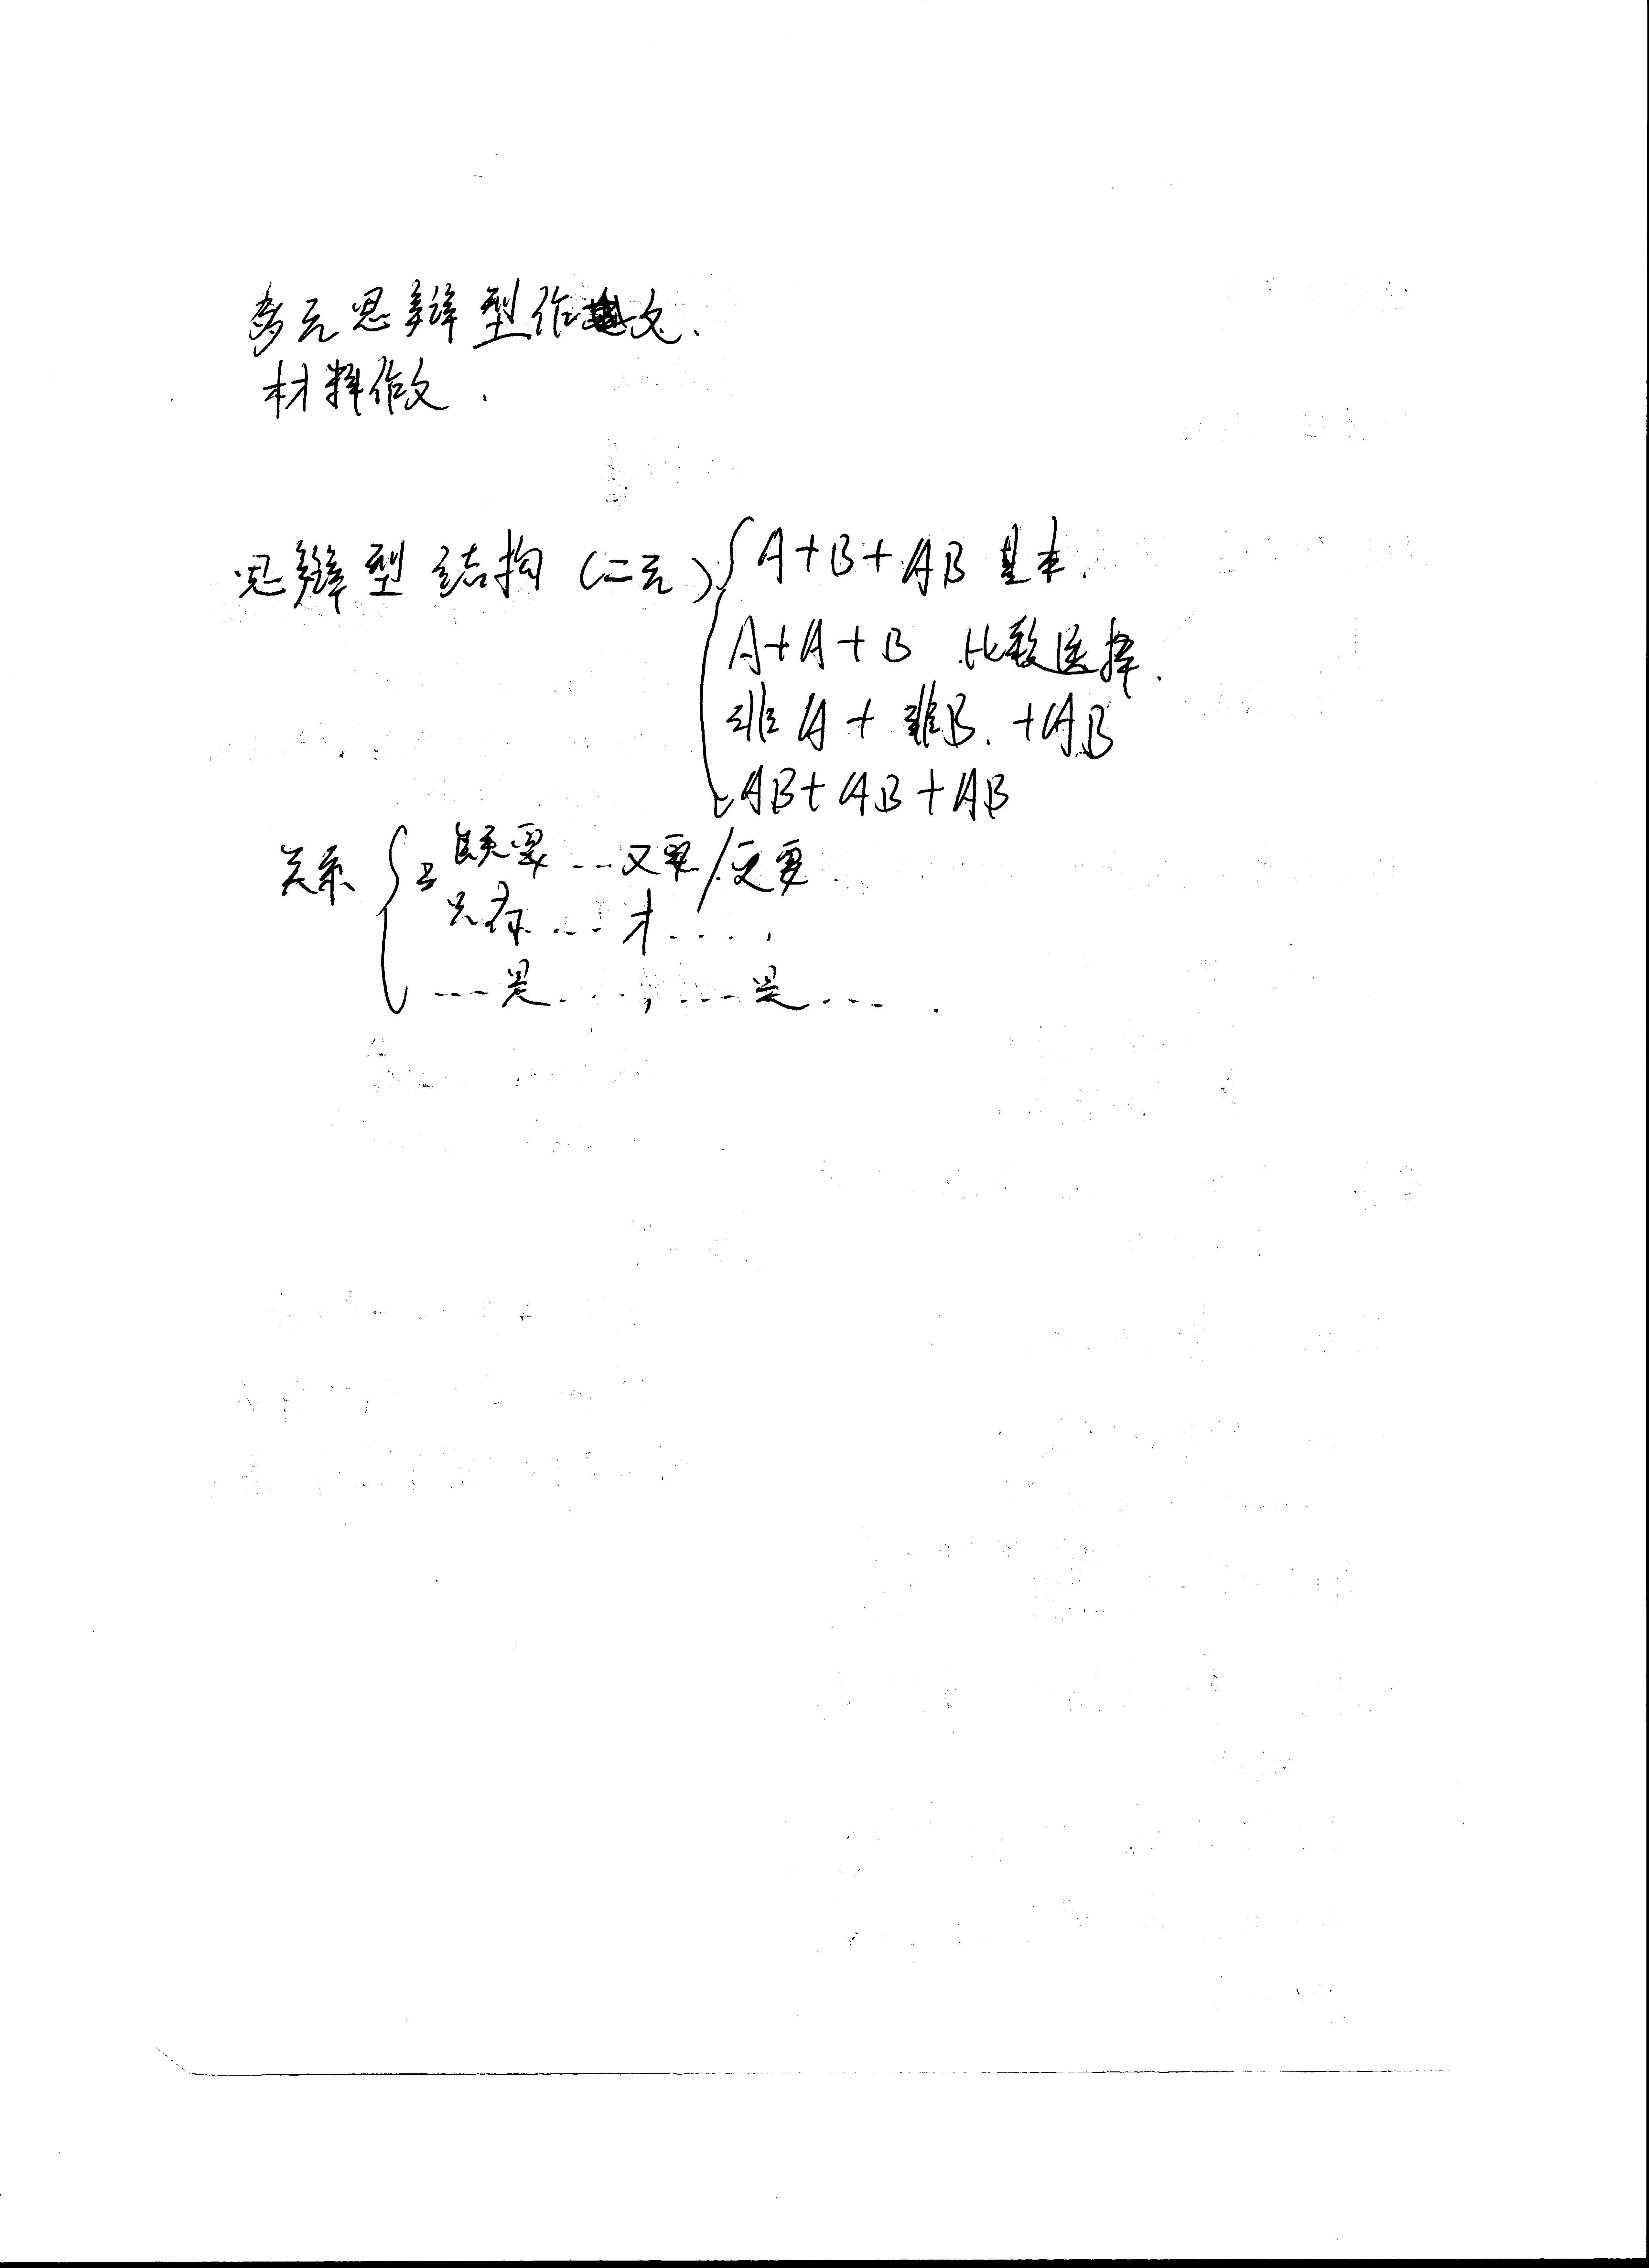 多元思辩型作文.
材料作文.
思辩型结构(二元) A+B+AB 基本.
A+A+B 比较选择.
非A+非B.+AB
AB+AB+AB
关系 既要...又要/更要.
只有...才....
....是....,....是....